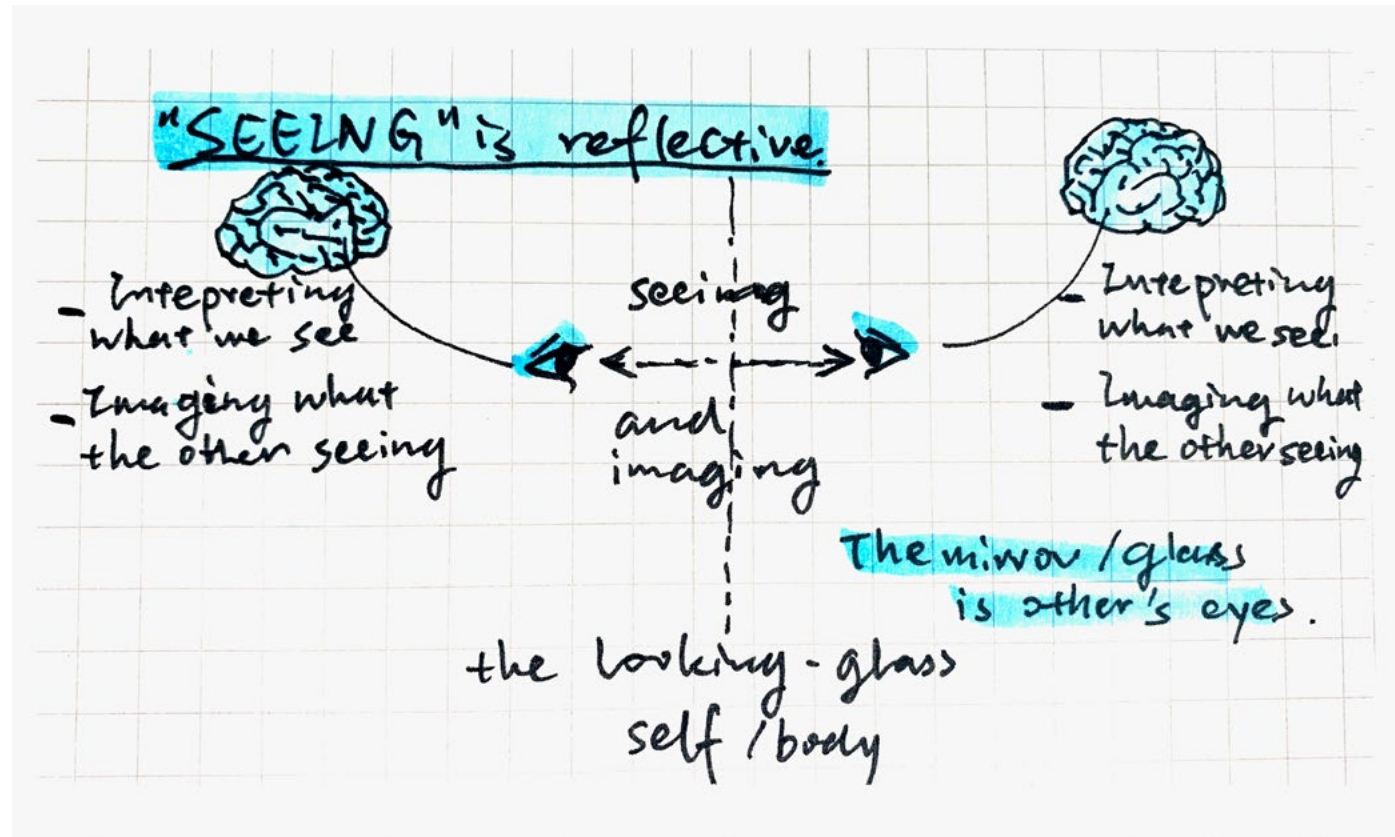 "SEEING" is reflective.
- Intepreting
what we see
- Imaging what
the other seeing
seeing
and
imaging
- Intepreting
what we see.
- Imaging what
the other seeing
The mirror/glass
is other's eyes.
the looking-glass
self/body